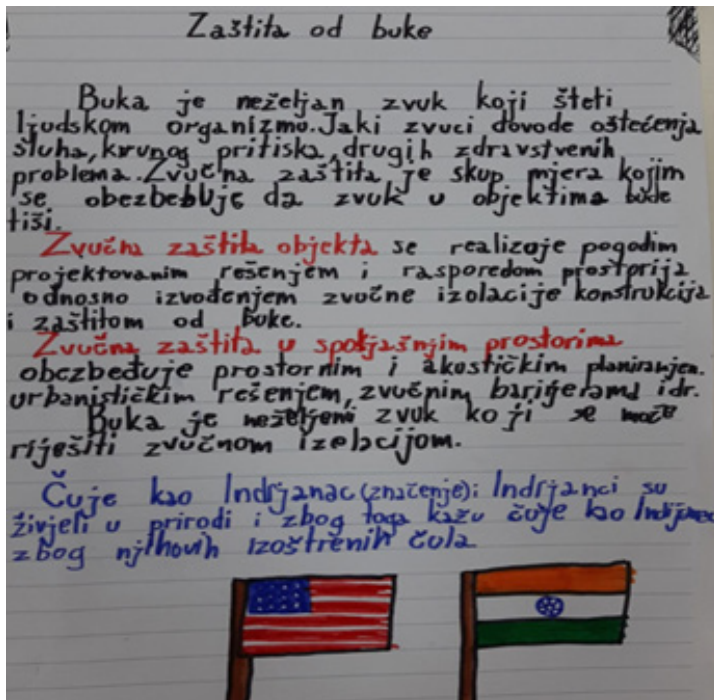 Zaštita od buke
Buka je neželjan zvuk koji šteti
ljudskom organizmu. Jaki zvuci dovode oštećenja
sluha, krvnog pritiska, drugih zdravstvenih
problema. Zvučna zaštita je skup mjera kojim
se obezbebuje da zvuk u objektima bude
tiši.
Zvučna zaštita objekta se realizoje pogodim
projektovanim rešenjem i rasporedom prostorija
odnosno izvođenjem zvučne izolacije konstrukcija
i zaštitom od buke.
Zvučna zaštita u spoljašnjim prostorima
obezbeđuje prostornim i akustičkim planiranjem.
urbanističkim rešenjem, zvučnim barijerama i dr.
Buka je neželjeni zvuk koji se može
riješiti zvučnom izolacijom.
Čuje kao Indijanac (značenje): Indijanci su
živjeli u prirodi i zbog toga kažu čuje kao Indijanac
zbog njihovih izoštrenih čula